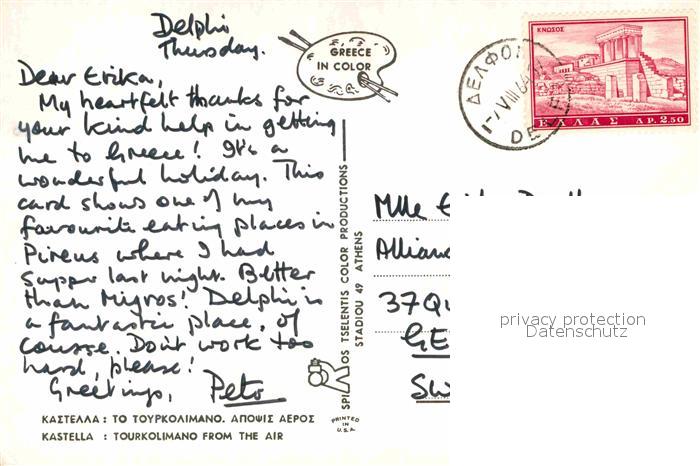 Delphi
Thursday.
Dear Erika,
My heartfelt thanks for
your kind help in getting
me to Greece! It's a
wonderful holiday. This
card shows one of my
favourite eating places in
Pireus where I had
supper last night. Better
than Migros! Delphi is
a fantastic place, of
course. Don't work too
hard, please!
Greetings,
GREECE
IN COLOR
SPIROS TSELENTIS COLOR PRODUCTIONS
STADIOU 49 ATHENS
ΚΑΣΤΕΛΛΑ : ΤΟ ΤΟΥΡΚΟΛΙΜΑΝΟ. ΑΠΟΨΙΣ ΑΕΡΟΣ
KASTELLA : TOURKOLIMANO FROM THE AIR
PRINTED
IN
U.S.A
ΚΝΩΣΟΣ
ΕΛΛΑΣ ΔΡ. 2.50
ΔΕΛΦΟΙ
Mlle
Allian
37 Qu
GE
SW
privacy protection
Datenschutz